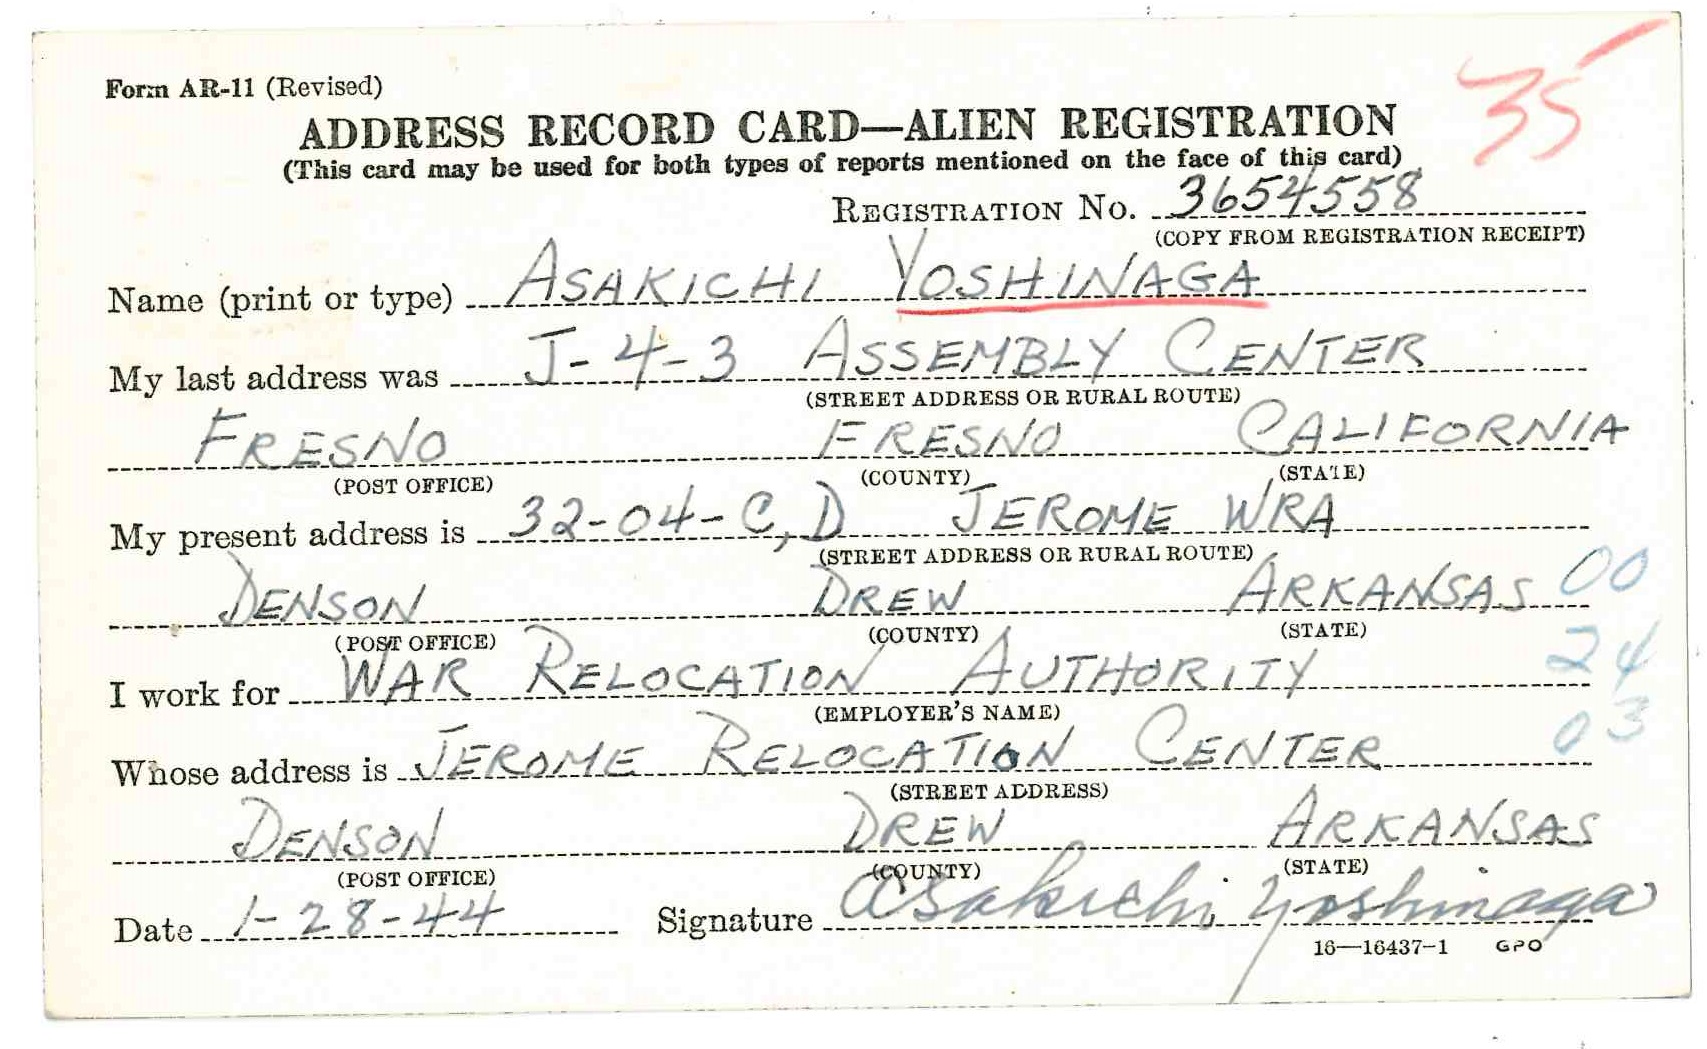 Form AR-11 (Revised)
35
ADDRESS RECORD CARD—ALIEN REGISTRATION
(This card may be used for both types of reports mentioned on the face of this card)
REGISTRATION No. 3654558
(COPY FROM REGISTRATION RECEIPT)
Name (print or type) ASAKICHI YOSHINAGA
My last address was J-4-3 ASSEMBLY CENTER
(STREET ADDRESS OR RURAL ROUTE)
FRESNO FRESNO CALIFORNIA
(POST OFFICE) (COUNTY) (STATE)
My present address is 32-04-C, D JEROME WRA
(STREET ADDRESS OR RURAL ROUTE)
DENSON DREW ARKANSAS 00
(POST OFFICE) (COUNTY) (STATE)
24
I work for WAR RELOCATION AUTHORITY
(EMPLOYER'S NAME)
03
Whose address is JEROME RELOCATION CENTER
(STREET ADDRESS)
DENSON DREW ARKANSAS
(POST OFFICE) (COUNTY) (STATE)
Date 1-28-44 Signature Asakichi Yoshinaga
16—16437-1 GPO